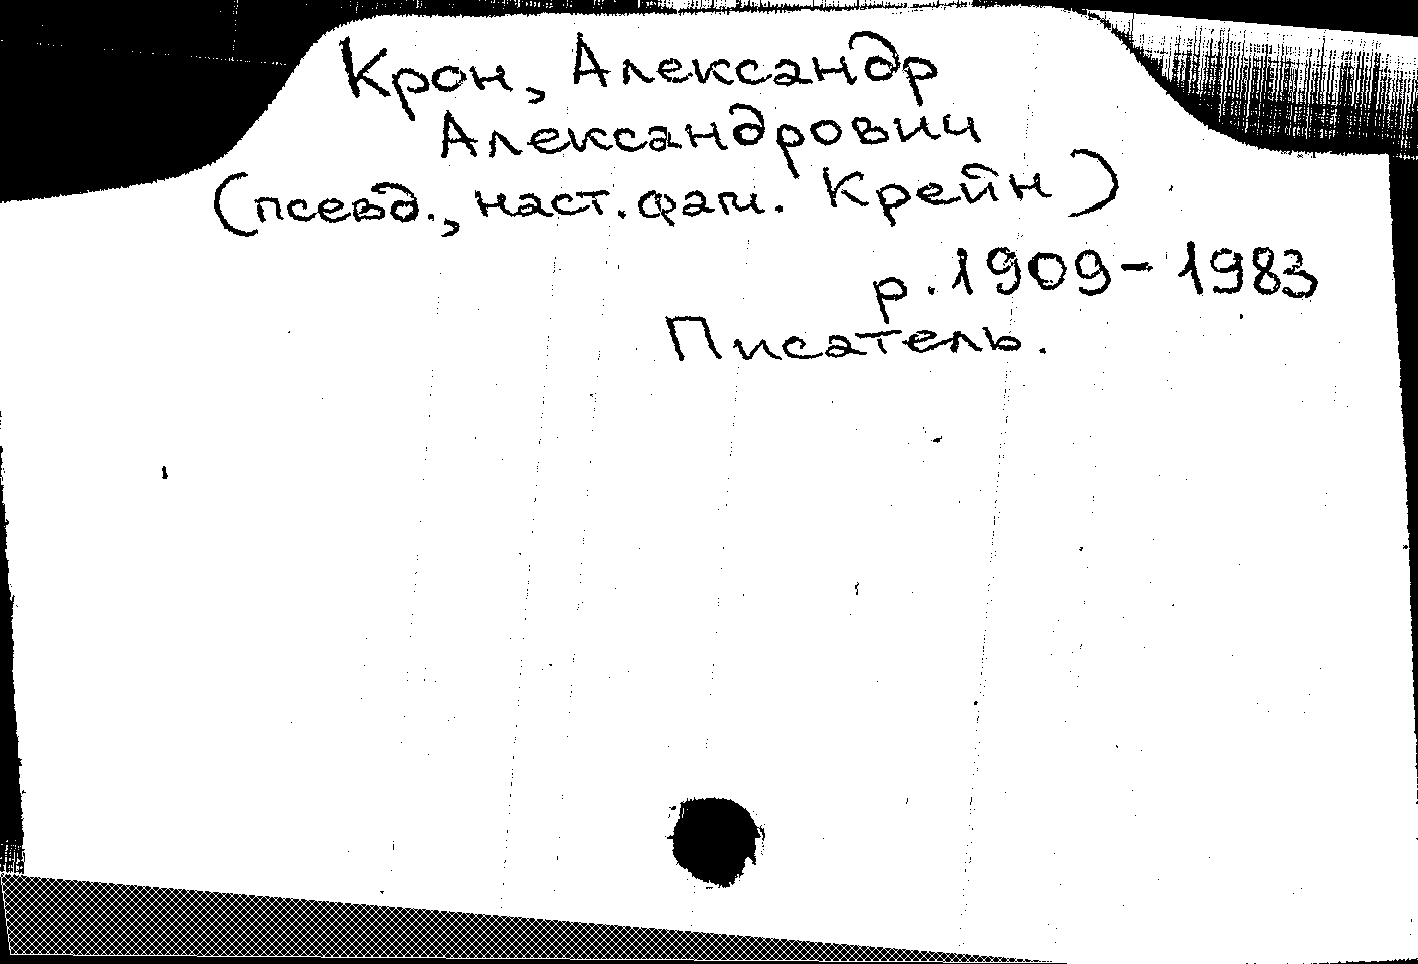 Крон, Александр
Александрович
(псевд., наст. фам. Крейн)
р. 1909-1983
Писатель.